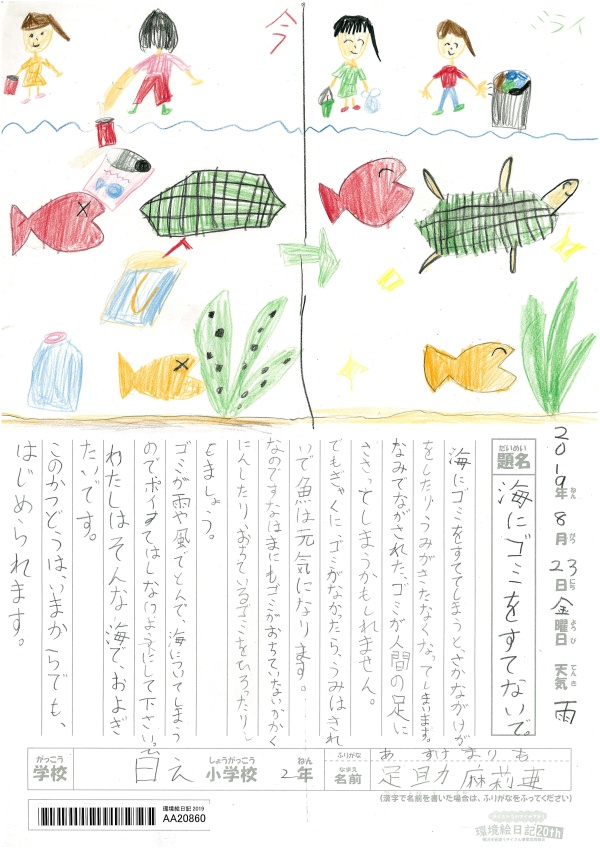 今
ミライ
2019年8月23日金曜日 天気 雨
ねん がつ にち よう び てん き
だいめい
題名
海にゴミをすてないで。
海にゴミをすててしまうと、さかながけが
をしたり、うみがきたなくなってしまいます。
なみでながされた、ゴミが人間の足に
ささってしまうかもしれません。
でもぎゃくに、ゴミがなかったら、うみはきれ
いで魚は元気になります。
なのですなはまにもゴミがおちていないかかく
にんしたり、おちているゴミをひろったりと
ましょう。
ゴミが雨や風でとんで、海についてしまう
のでポイすてはしないようにして下さい。
わたしはそんな海で、およぎ
たいです。
このかつどうは、いまからでも、
はじめられます。
がっこう しょうがっこう ねん
学校 日え 小学校 2年
ふりがな あ すけ まり
なまえ
名前 足助 麻莉亜
(漢字で名前を書いた場合は、ふりがなをふってください)
環境絵日記 2019
AA20860
環境絵日記 20th